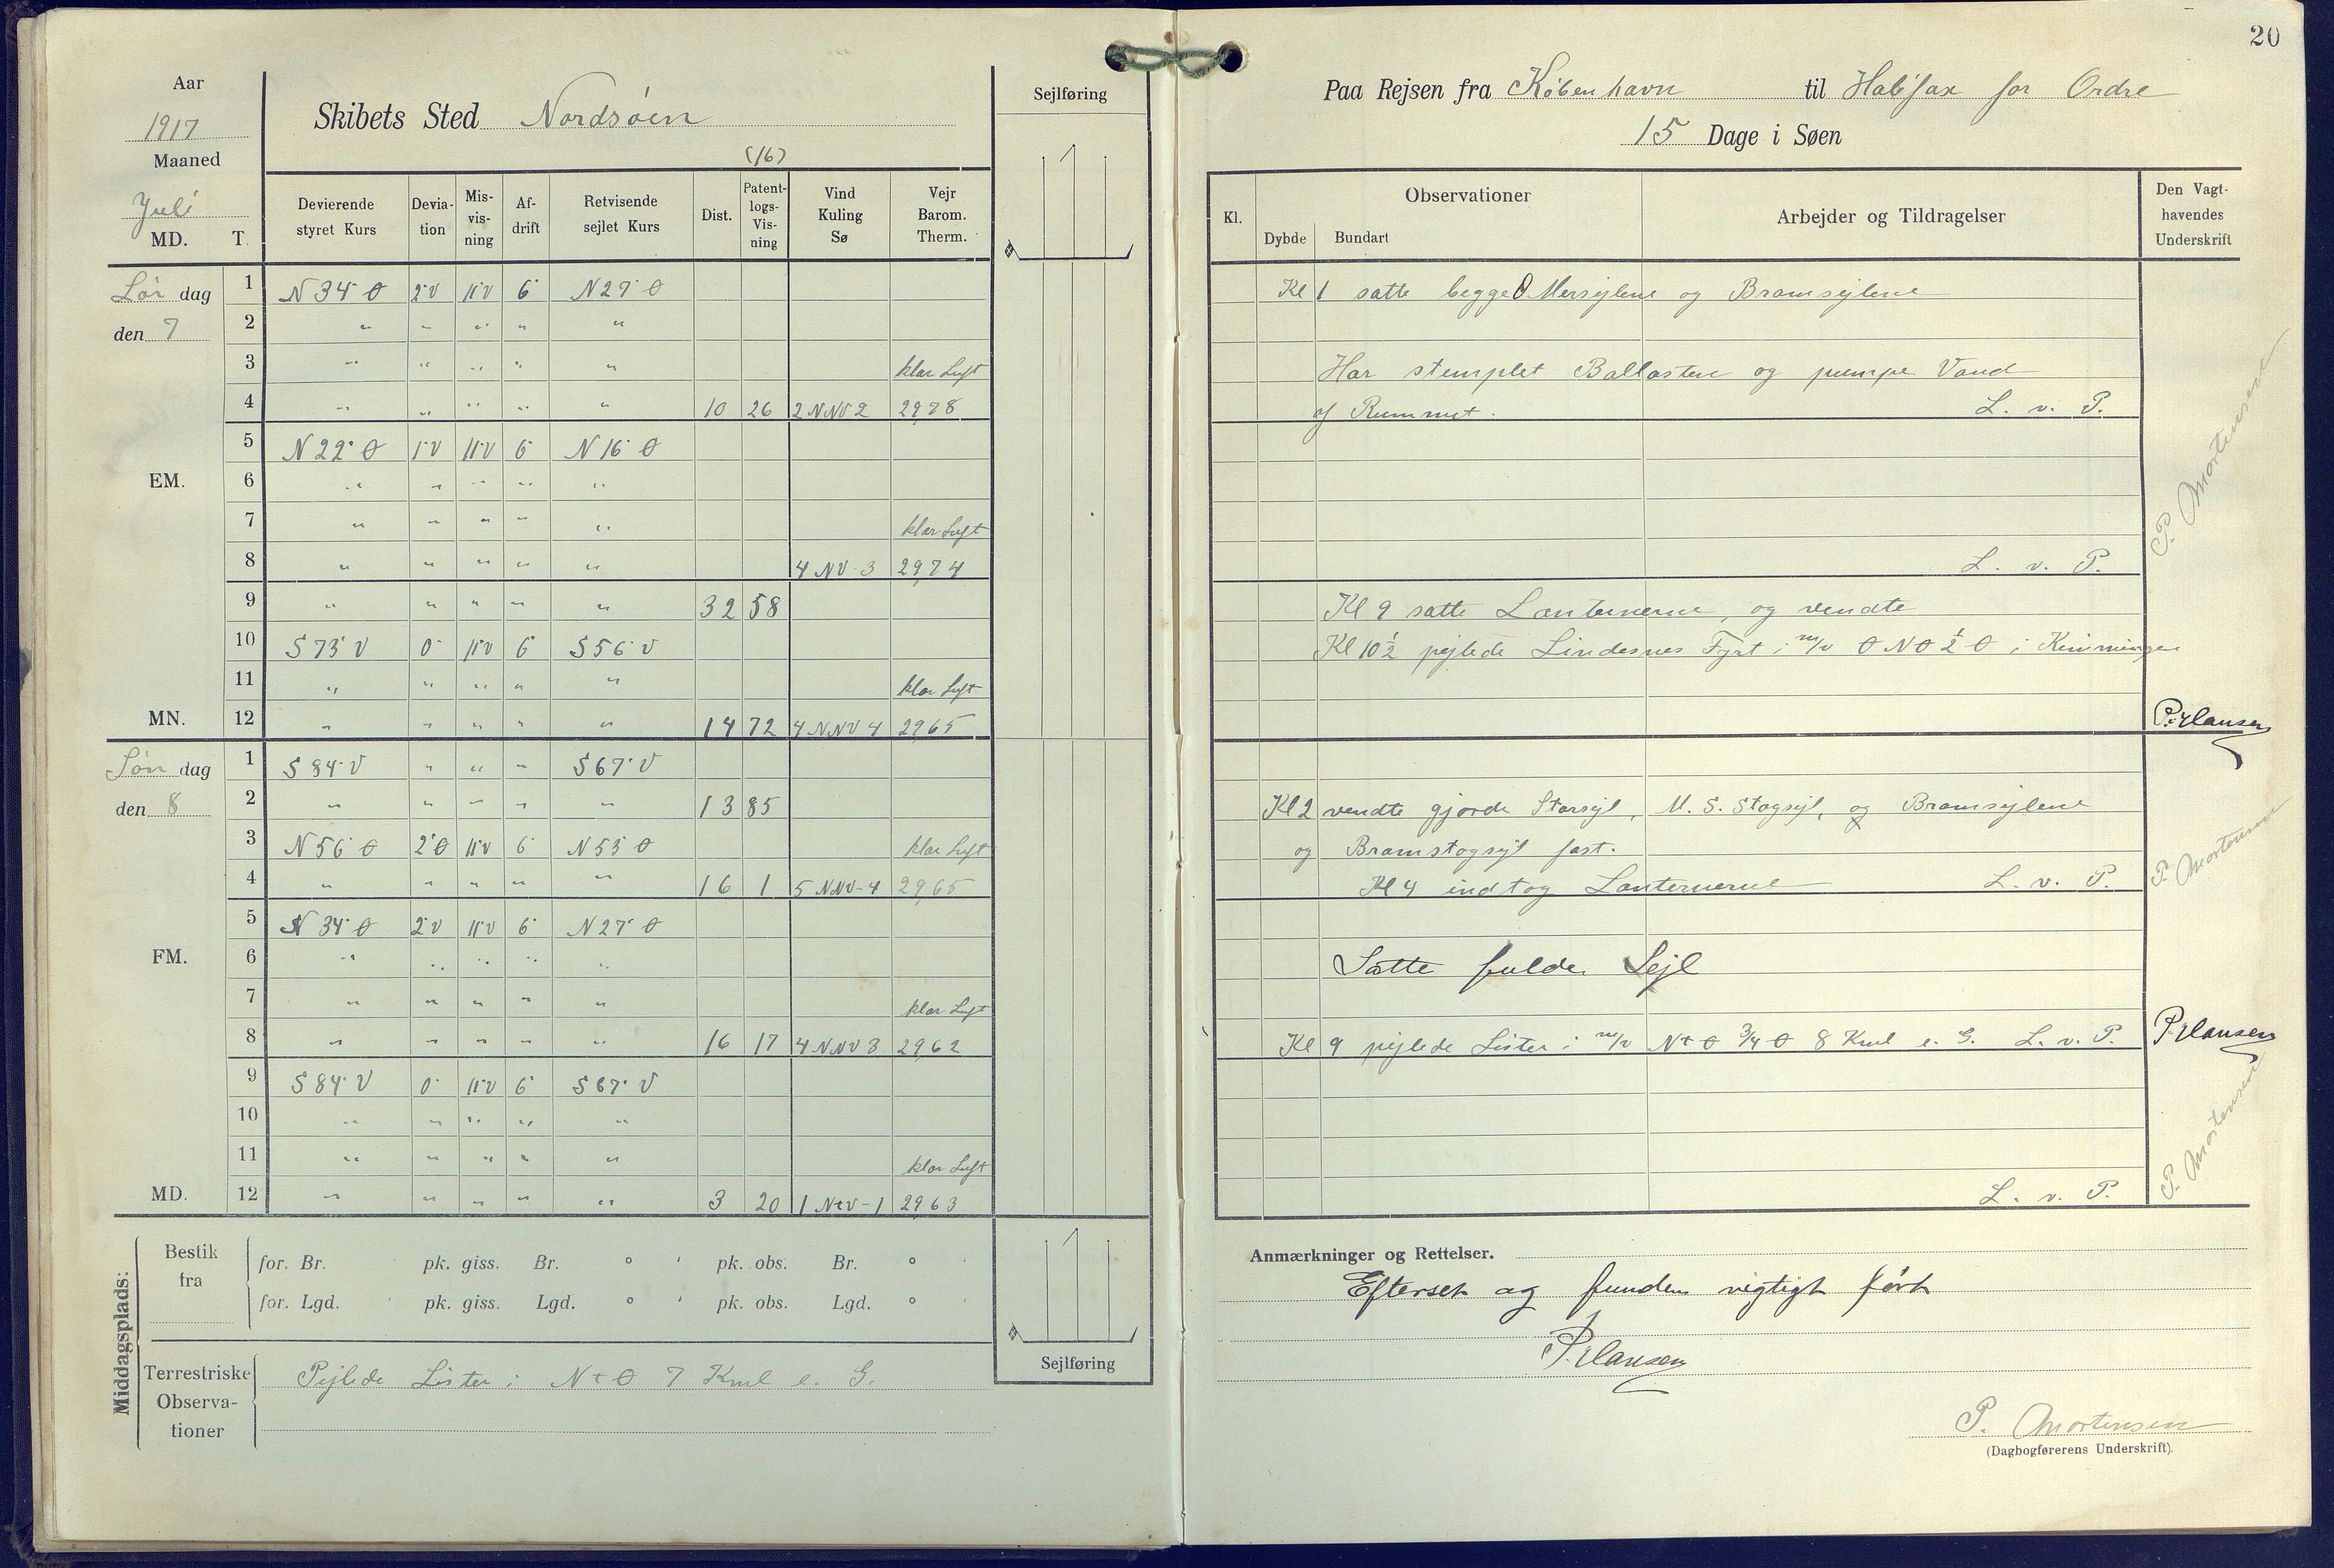 20
Aar
1917
Maaned
Juli
MD. T.
Skibets Sted Nordsøen
(16)
Sejlføring
Devierende styret Kurs | Deviation | Misvisning | Afdrift | Retvisende sejlet Kurs | Dist. | Patentlogs-Visning | Vind Kuling Sø | Vejr Barom. Therm.
Lør dag
den 7
1 N 34° Ø 2°V 11°V 6° N 27° Ø
2 " " " " "
3 " " " " " klar Luft
4 " " " " " 10 26 2 NNV 2 2978
5 N 22° Ø 1°V 11°V 6° N 16° Ø
EM. 6 " " " " "
7 " " " " " klar Luft
8 " " " " " 4 NV-3 2974
9 " " " " " 32 58
10 S 73° V 0° 11°V 6° S 56° V
11 " " " " " klar Luft
MN. 12 " " " " " 14 72 4 NNV 4 2965
Søn dag
den 8
1 S 84° V " " " S 67° V
2 " " " " " 13 85
3 N 56° Ø 2°Ø 11°V 6° N 53° Ø klar Luft
4 " " " " " 16 1 5 NNV-4 2965
5 N 34° Ø 2°V 11°V 6° N 27° Ø
FM. 6 " " " " "
7 " " " " " klar Luft
8 " " " " " 16 17 4 NNV 3 2962
9 S 84° V 0° 11°V 6° S 67° V
10 " " " " "
11 " " " " " klar Luft
MD. 12 " " " " " 3 20 1 NtV-1 2963
Middagsplads:
Bestik fra
for. Br. ' pk. giss. Br. ° ' pk. obs. Br. ° '
for. Lgd. ' pk. giss. Lgd. ° ' pk. obs. Lgd. ° '
Terrestriske Observationer
Pejlede Lister i NtØ 7 Kml e. G.
Sejlføring
Paa Rejsen fra København til Halifax for Ordre
15 Dage i Søen
Kl. | Observationer | Dybde | Bundart | Arbejder og Tildragelser | Den Vagthavendes Underskrift
Kl 1 satte begge Ø Mersejlene og Bramsejlene
Har stemplet Ballasten og pumpe Vand
af Rummet. L. v. P.
P. Mortensen
L. v. P.
Kl 9 satte Lanternerne, og vendte
Kl 10 1/2 pejlede Lindesnes Fyrt i m/v Ø N Ø 1/2 Ø i Kimmingen
P. Hansen
Kl 2 vendte gjorde Storsejl, M. S. Stagsejl, og Bramsejlene
og Bramstagsejl fast.
Kl 4 indtog Lanternerne L. v. P.
P. Mortensen
Satte fulde Sejl
Kl 9 pejlede Lister i m/v NtØ 3/4 Ø 8 Kml e. G. L. v. P.
P. Hansen
P. Mortensen
L. v. P.
Anmærkninger og Rettelser.
Efterset og funden rigtigt ført
P. Hansen
P. Mortensen
(Dagbogførerens Underskrift).